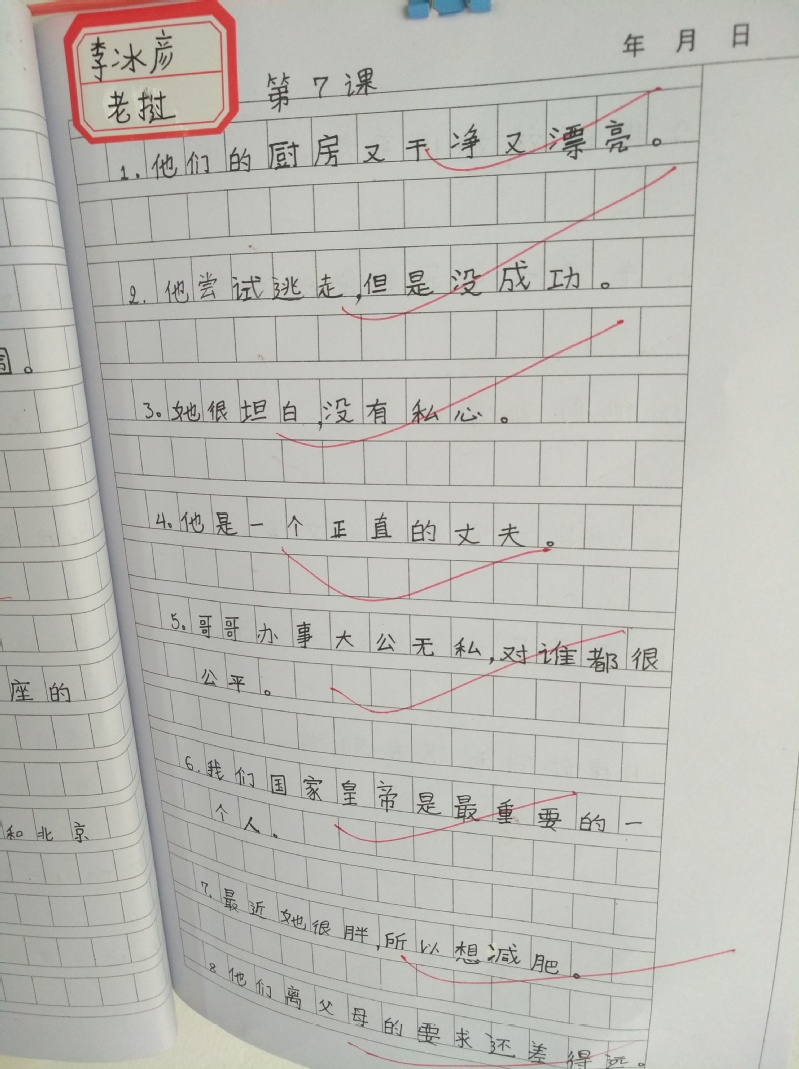 李冰彦
老挝
年 月 日
第7课
1. 他们的厨房又干净又漂亮。
2. 他尝试逃走,但是没成功。
3. 她很坦白,没有私心。
4. 他是一个正直的丈夫。
5. 哥哥办事大公无私,对谁都很
公平。
6. 我们国家皇帝是最重要的一
个人。
7. 最近她很胖,所以想减肥。
8. 他们离父母的要求还差得远。
。
座的
和北京